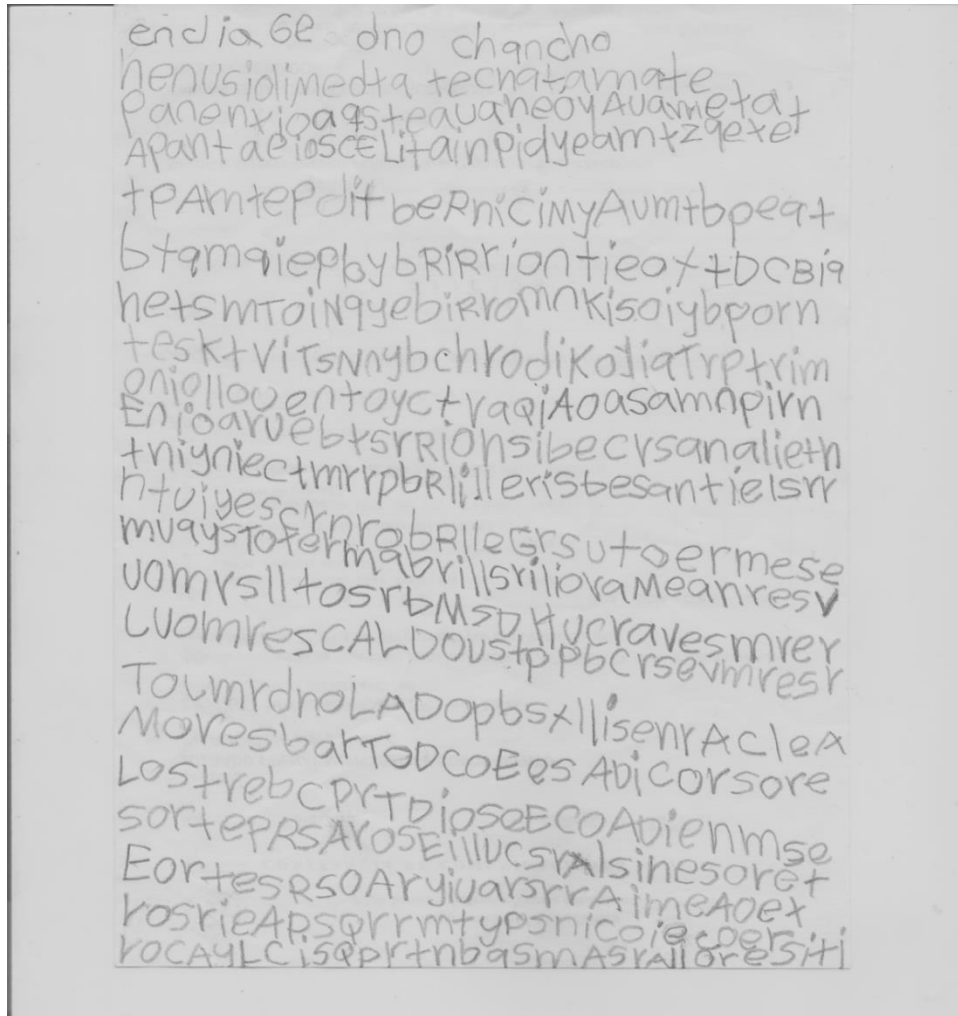 endia Ge dno chancho
henusiolimedta tecnatamate
PanenxioaqsteauaneoyAuameta t
APantaeiosCELitainpidyeamtzqexet
tPAmtePditbeRniCiMyAumtbpeat
btqmqiepbybRiRriontieoytDCBiq
hetsmToiNqyebieromnKisoiybporn
tesktViTsNnybchrodiKoJiaTrptrim
oniollouentoyctraqiAoasamnpirn
Enioaruebtsr RionsibeCrsanalieth
tniyniectmrrpbRlillerisbesantielsrr
htuiyescrnrobRlleGrsutoermese
muaysTofermabrillsrilioraMeanresv
uomrslltosrbMsDHycravesmrer
LuomresCALDOustpPbCrsevmresr
ToumrdnoLADopbsxllisenrAcleA
MoresbarToDCOEesADiCorsore
LostrebCPrTDioseECOADienmse
sortePRSArOSEillUCsrAlsinesoret
EortesRSOAryiuarsrrAimeAoex
rosrieAPsQrrmtypsnicoiecoersiti
rOCAyLCisQprtnbqsmAsrAlloresiti